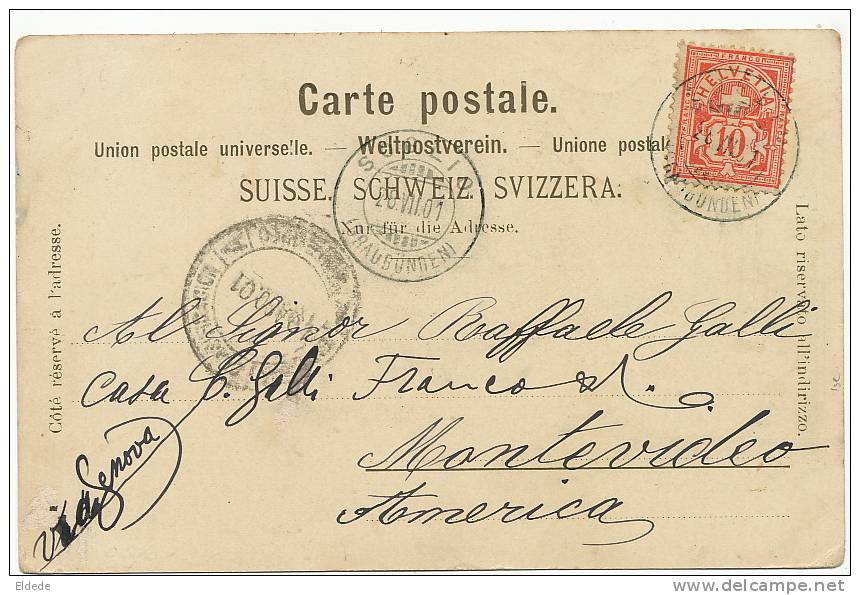 Carte postale.
Union postale universelle. — Weltpostverein. — Unione postale
SUISSE. SCHWEIZ. SVIZZERA.
Nur für die Adresse.
Côté réservé à l'adresse.
Lato riservato all'indirizzo.
HELVETIA
FRANCO
10
28.VII.01
(GRAUBÜNDEN)
Al Signor Raffaele Galli
Casa C. Galli Franco
Montevideo
America
via di Genova
Eldede
www.delcampe.net